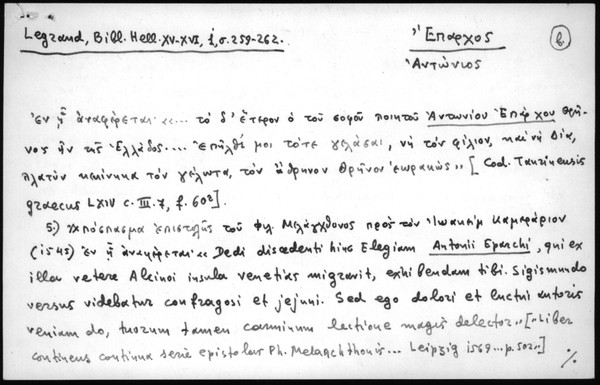 Legrand, Bibl. Hell. XV-XVI, 1, σ. 259-262.
Ἔπαρχος
Ἀντώνιος
6
ἐν ᾗ ἀναφέρεται «... τὸ δ' ἕτερον ὁ τοῦ σοφοῦ ποιητοῦ Ἀντωνίου Ἐπάρχου θρῆ-
νος ἦν τῆς Ἑλλάδος.... Ἐπῆλθέ μοι τότε γελάσαι, νὴ τὸν φίλιον, καὶ νὴ Δία,
πλατὺν κἀκεῖνκα τὸν γέλωτα, τὸν ἄθρηνον θρῆνον ἑωρακώς» [Cod. Taurinensis
graecus LXIV c. III. 7, f. 60²].
5) Ἀπόσπασμα ἐπιστολῆς τοῦ Φιλ. Μελάγχθονος πρὸς τὸν Ἰωακεὶμ Καμεράριον
(1545) ἐν ᾗ ἀναφέρεται « Dedi discedenti hinc Elegiam Antonii Eparchi, qui ex
illa vetere Alcinoi insula venetias migravit, exhibendam tibi. Sigismundo
versus videbatur confragosi et jejuni. Sed ego dolori et luctui autoris
veniam do, tuorum tamen carminum lectione magis delector» [«Liber
continens continua serie epistolas Ph. Melanchthonis... Leipzig 1569...p. 502»]
%